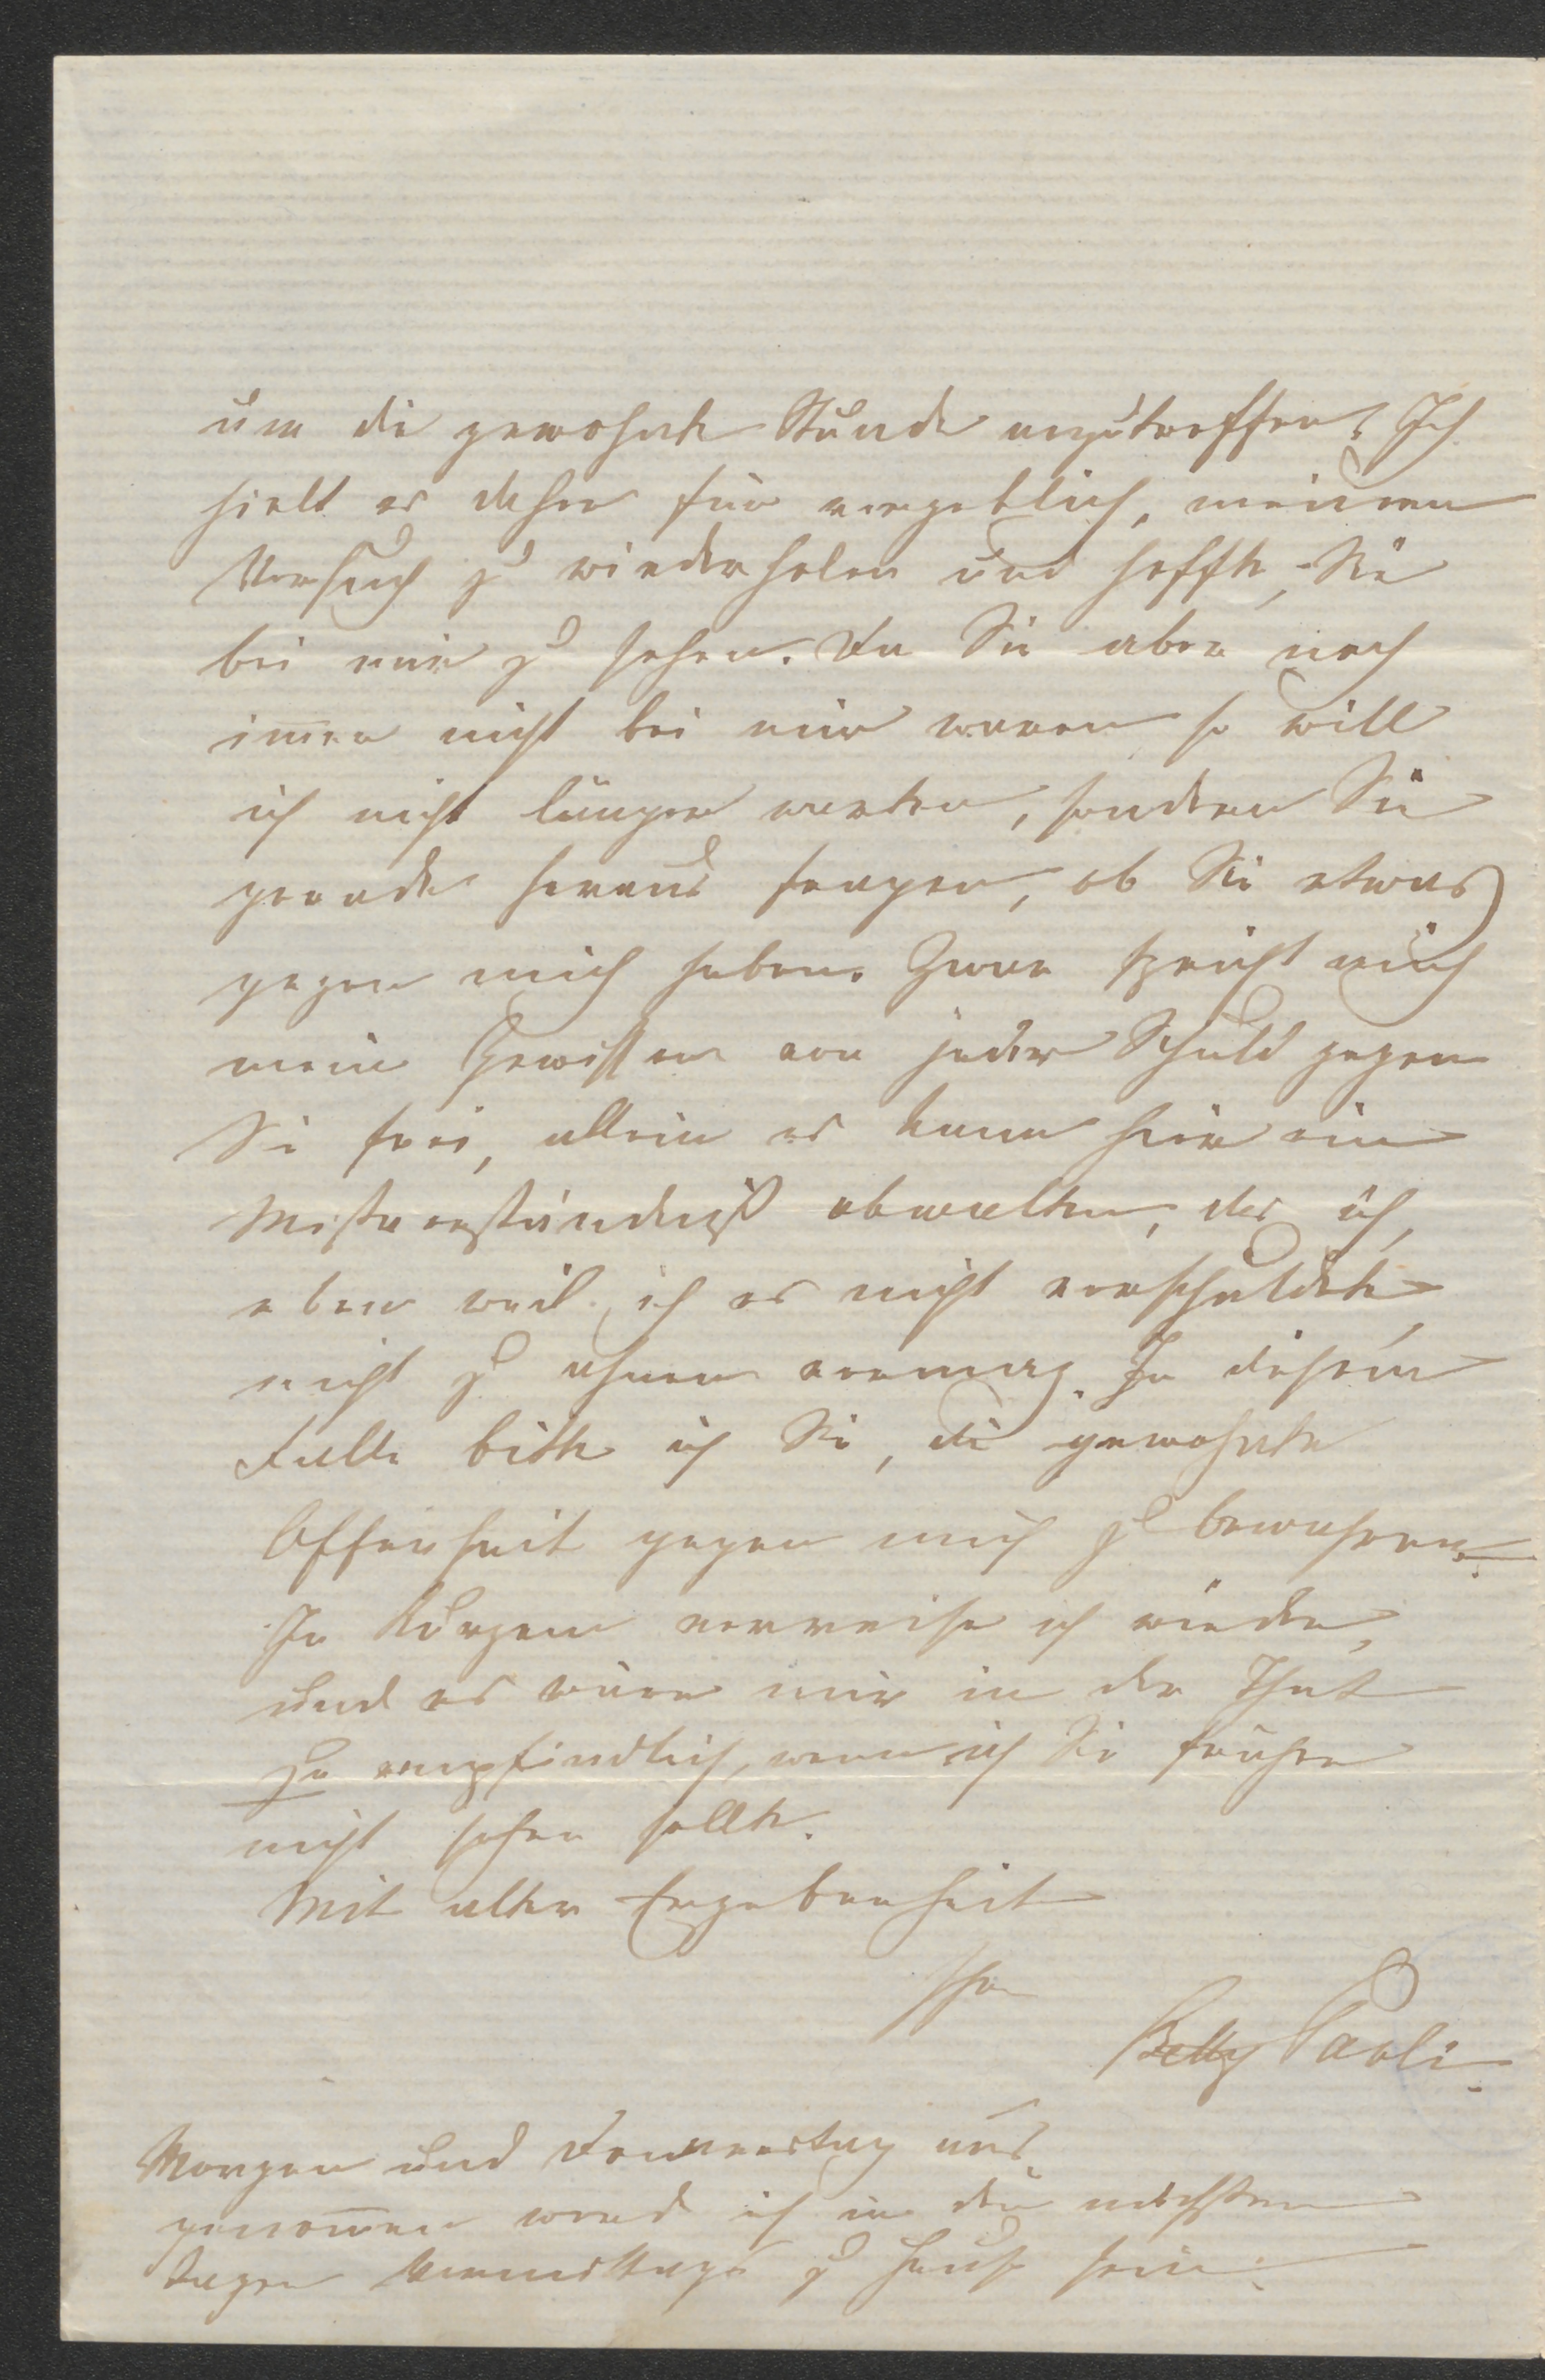 um die gewohnte Stunde anzutreffen. Ich
hielt es daher für vergeblich, meinen
Versuch zu wiederholen und hoffte, Sie
bei mir zu sehen. Da Sie aber noch
im̅er nicht bei mir waren so will
ich nicht länger warten, sondern Sie
gerade heraus fragen, ob Sie etwas
gegen mich haben. Zwar spricht mich
mein Gewissen von jeder Schuld gegen
Sie frei, allein es kann hier ein
Mißverständniß obwalten, das ich,
eben weil ich es nicht verschuldete,
nicht zu ahnen vermag. In diesem
Falle bitte ich Sie, die gewohnte
Offenheit gegen mich zu bewahren.
In Kurzem verreise ich wieder,
und es wäre mir in der That
zu empfindlich, wenn ich Sie früher
nicht sehen sollte.
Mit alter Ergebenheit
Ihre
Betty Paoli.
Morgen und Donnerstag aus-
genom̅en werd ich in den nächsten
Tagen Vormittags zu Hause sein.